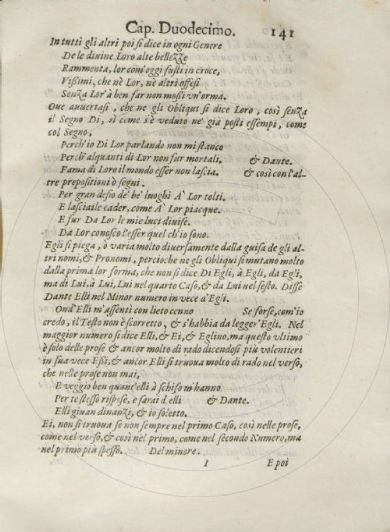 Cap. Duodecimo. 141
In tutti gli altri poi si dice in ogni Genere
De le diuine Loro alte bellezze
Rammenta, lor com'oggi fusti in croce,
Vißimi, che nè Lor, nè altri offesi
Senza Lor'à ben far non mosi vn'orma.
Oue auuertasi, che ne gli Obliqui si dice Loro, così senza
il Segno Di, sì come s'è veduto ne' già posti essempi, come
col Segno,
Perch'io Di Lor parlando non mi stanco
Perch'alquanti di Lor non fur mortali, & Dante.
Fama di Loro il mondo esser non lascia. & così con l'al-
tre prepositioni è segui.
Per gran desio de' be' luoghi A' Lor tolti.
E lasciale cader, come A' Lor piacque.
E fur Da Lor le mie luci diuise.
Da Lor conosco l'esser quel ch'io sono.
Egli si piega, ò varia molto diuersamente dalla guisa de gli al-
tri nomi, & Pronomi, percioche ne gli Obliqui si mutano molto
dalla prima lor forma, che non si dice Di Egli, à Egli, da Egli,
ma di Lui, à Lui, Lui nel quarto Caso, & da Lui nel sesto. Disse
Dante Elli nel Minor numero in vece d'Egli.
Ond'Elli m'assenti con lieto cenno Se forse, com'io
credo, il Testo non è scorretto, & s'habbia da legger'Egli. Nel
maggior numero si dice Elli, & Ei, & Eglino, ma questo vltimo
è solo delle prose & ancor molto di rado dicendosi più volentieri
in sua vece Eßi, & ancor Elli si truoua molto di rado nel verso,
che nelle prose non mai,
E veggio ben quant'elli à schifo m'hanno
Per te stesso rispose, e sarai d elli & Dante.
Elli giuan dinanzi, & io soletto.
Ei, non si truoua se non sempre nel primo Caso, così nelle prose,
come nel verso, & così nel primo, come nel secondo Numero, ma
nel primo più spesso. Del minore.
I E poi